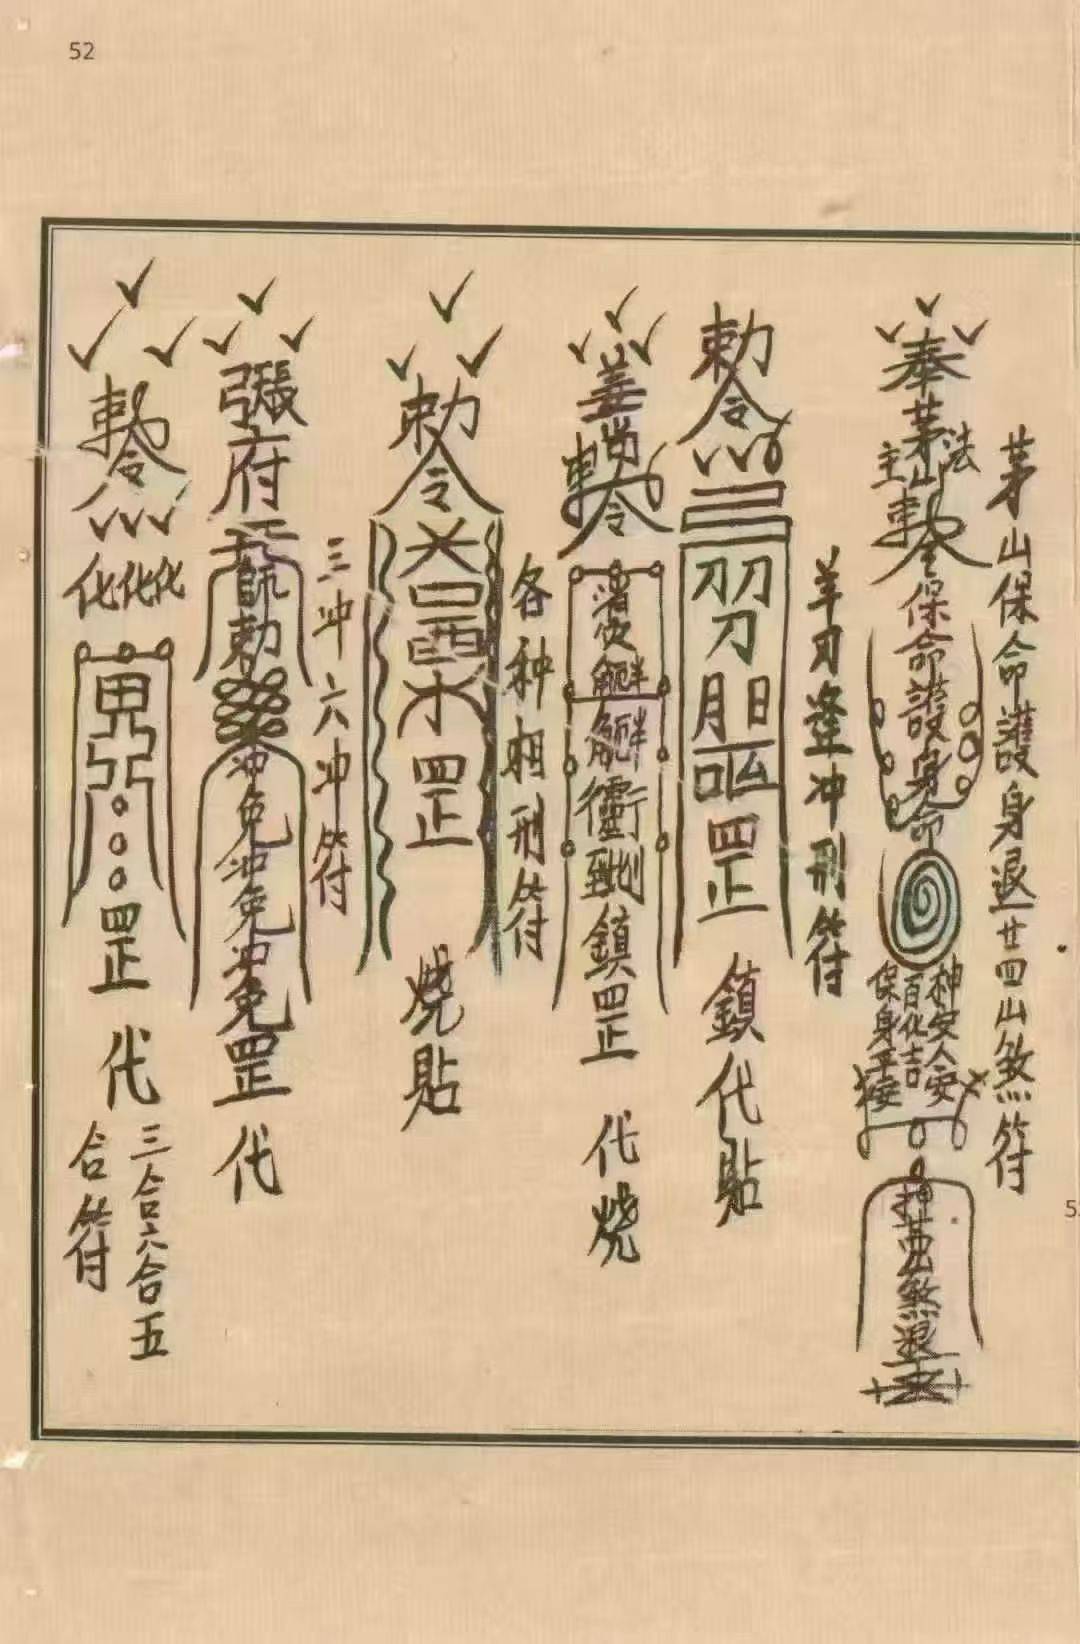 52
茅山保命護身退廿四山煞符
奉茅山法主敕令保命護身命
神安人安
百化吉
保身平安
押煞退
羊刃逢冲刑符
敕令
刀刀刀
罡
鎮代貼
各种相刑符
姜
敕令
鎮罡
代烧
敕令
罡
烧貼
三冲六冲符
張府天師敕
冲免冲免冲免罡
代
敕令
化化化
罡
代
三合六合五
合符